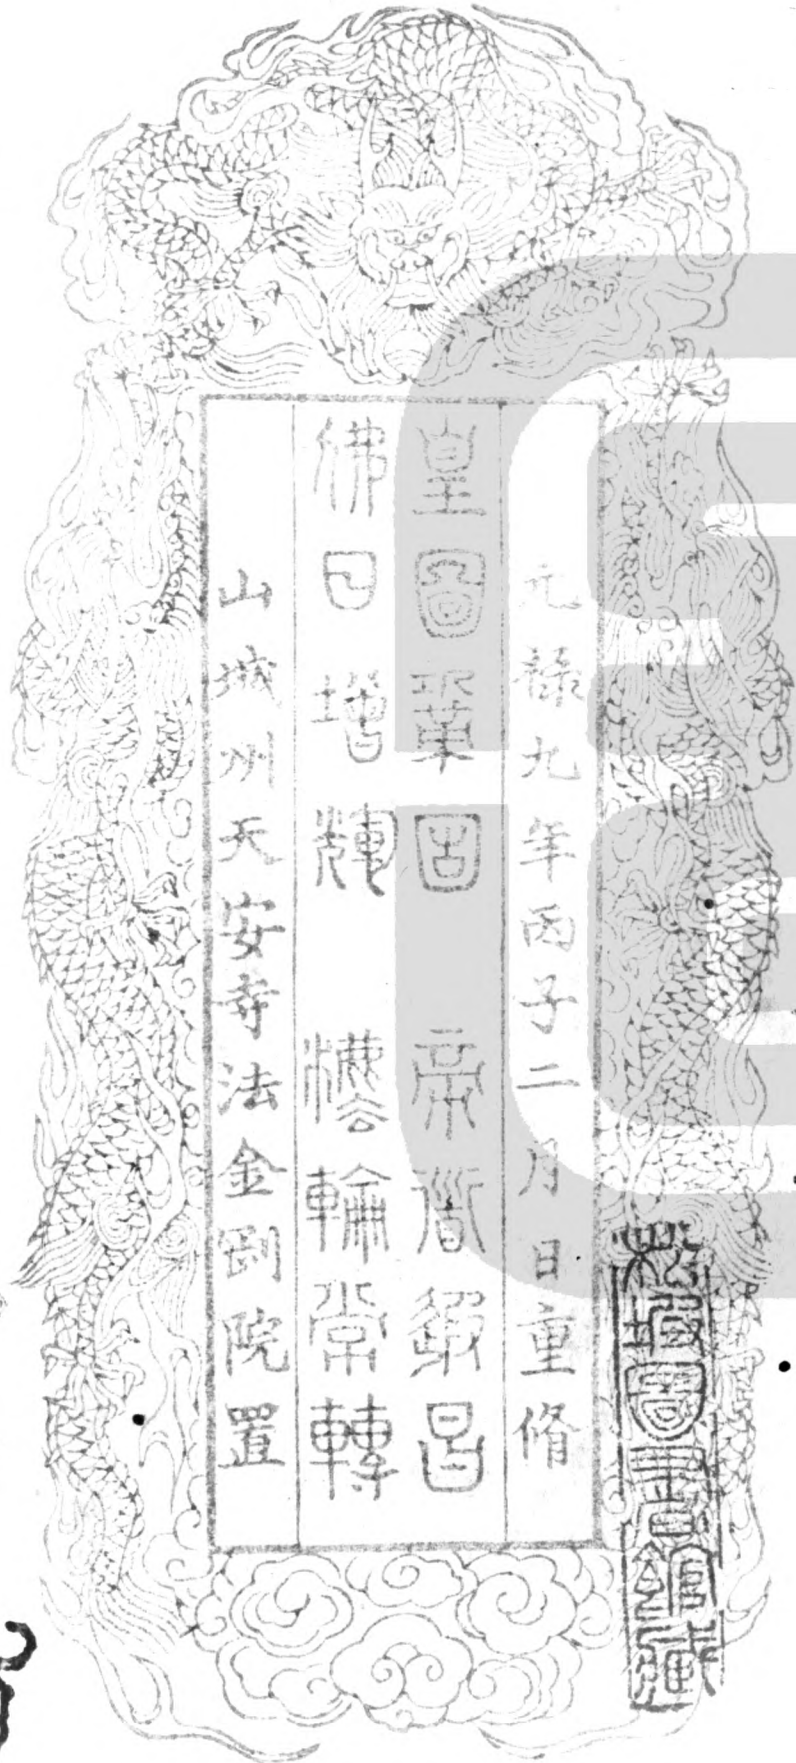 元祿九年丙子二月日重脩
皇圖鞏固 帝道遐昌
佛日增輝 法輪常轉
山城州天安寺法金剛院置
松坡圖書館藏